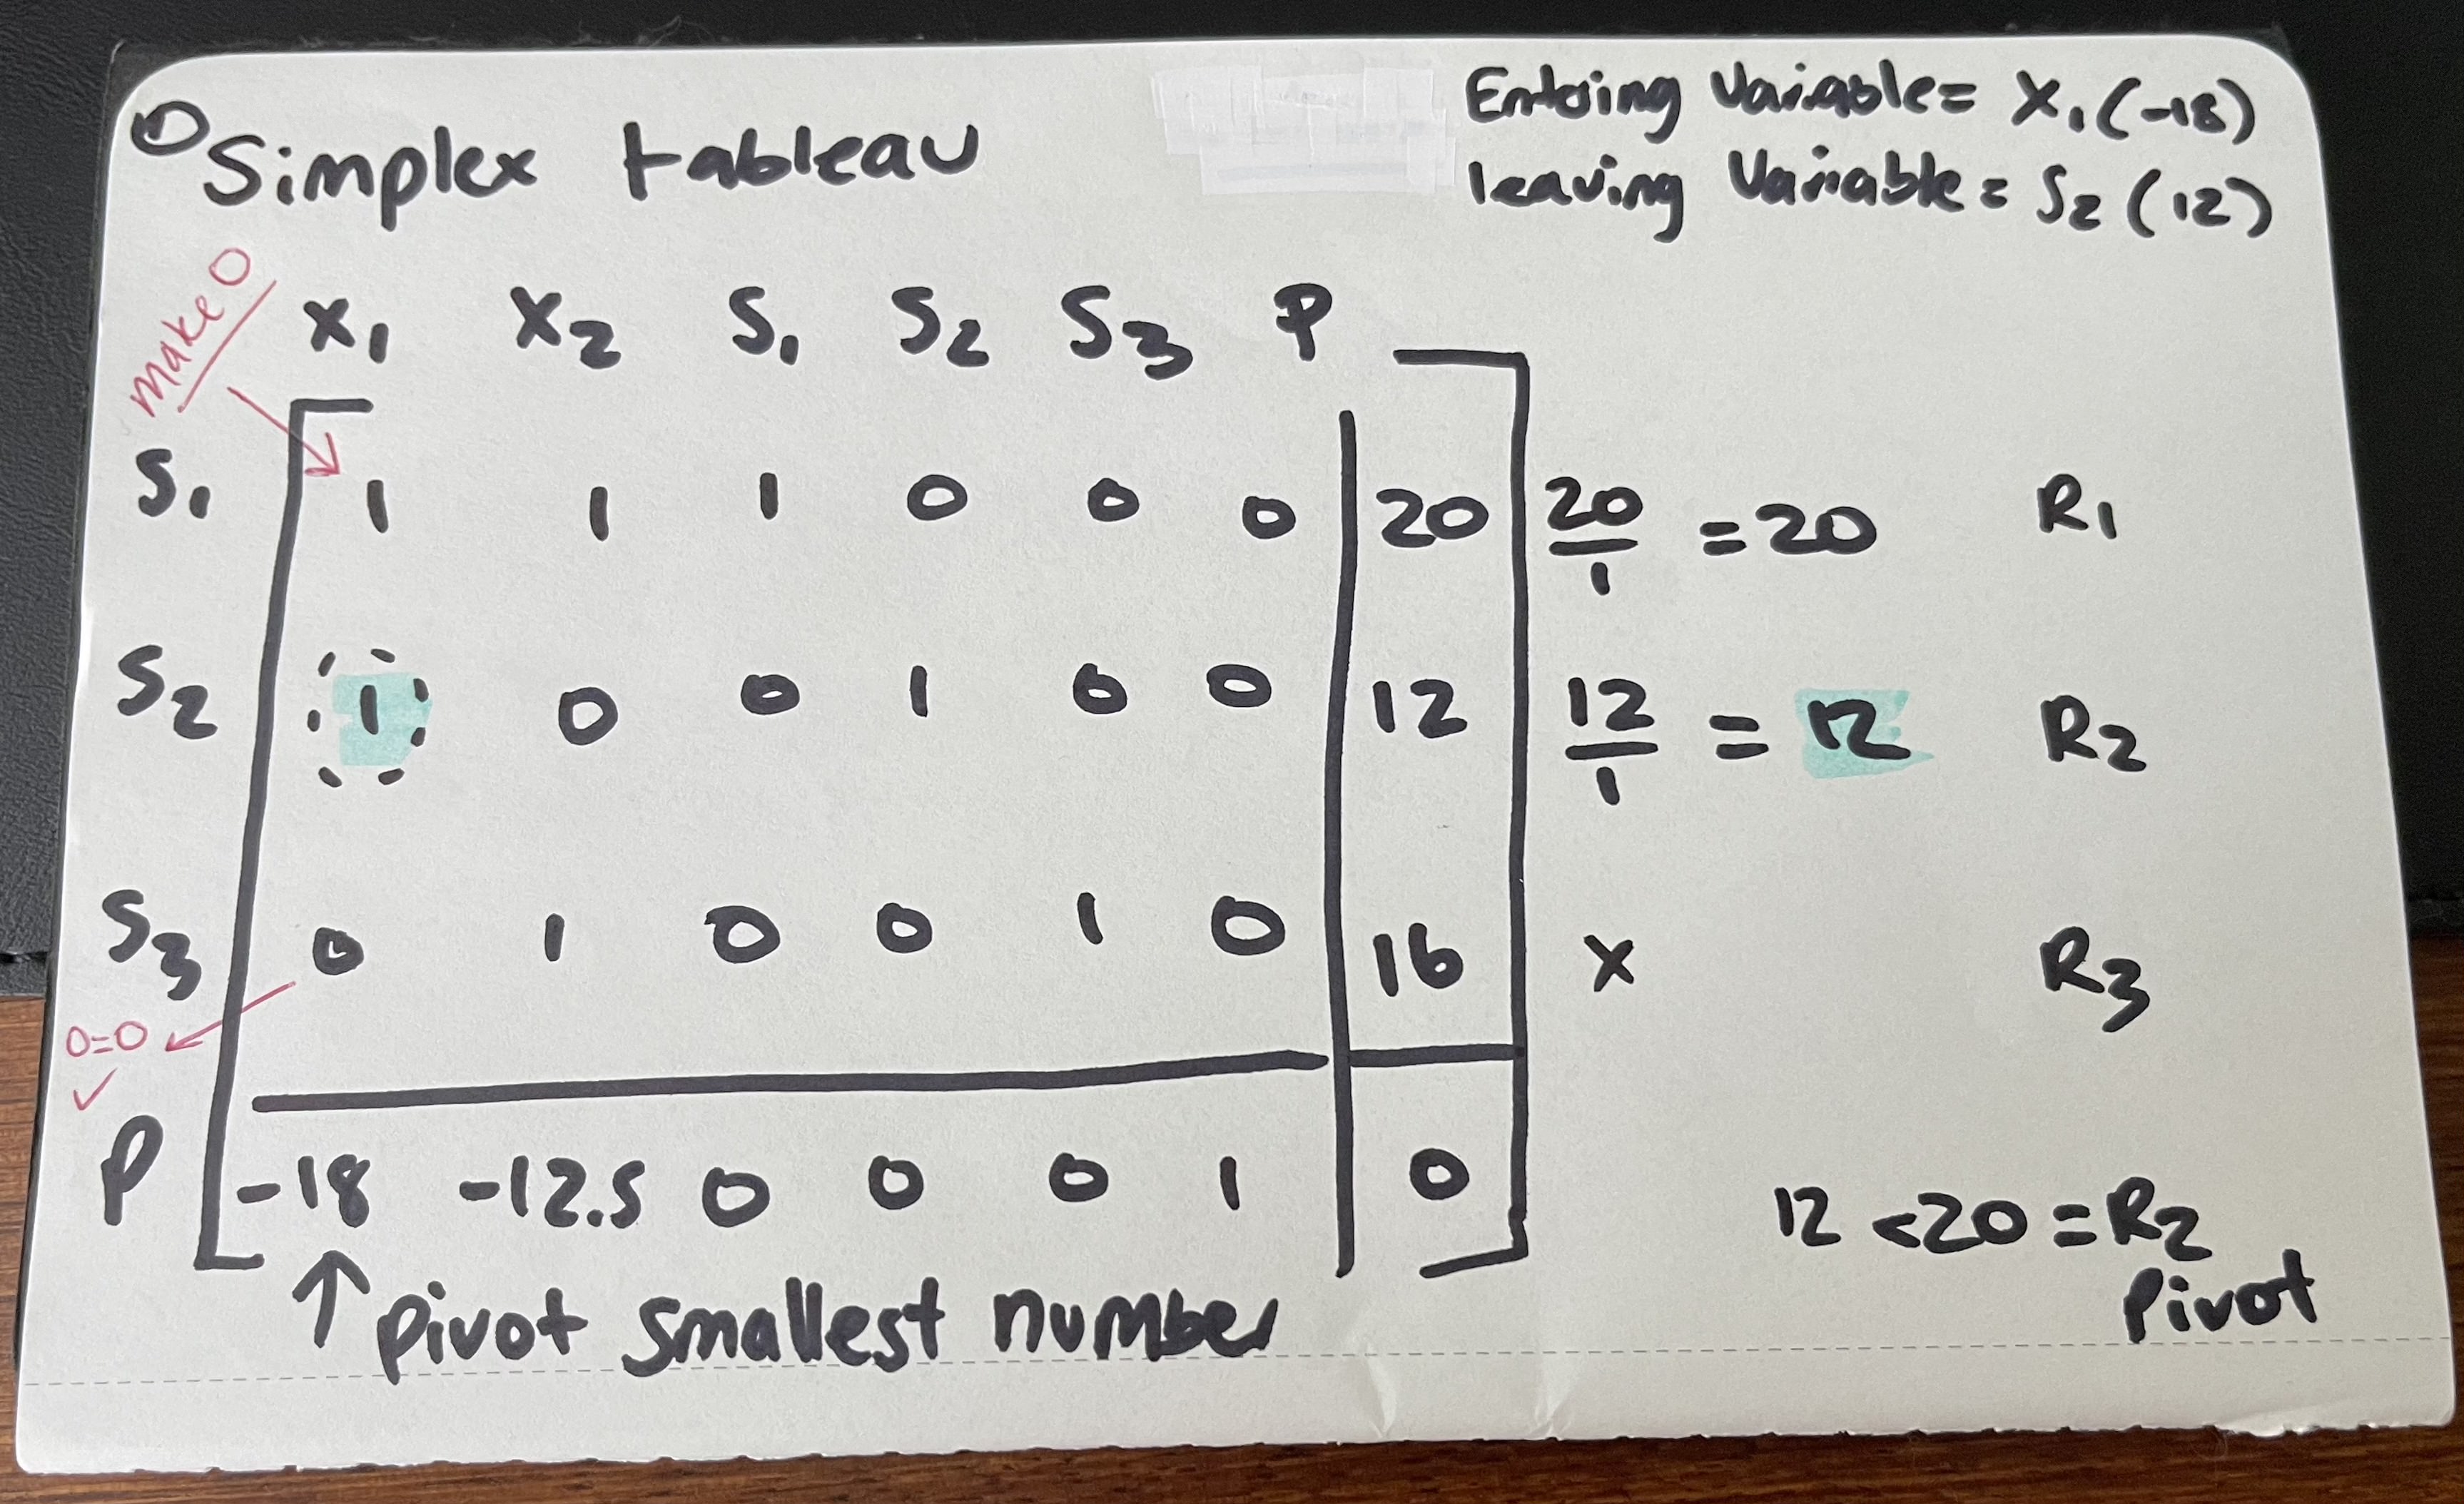 ① Simplex tableau
Entering Variable = X₁ (-18)
leaving Variable = S₂ (12)
make 0
X₁ X₂ S₁ S₂ S₃ P
S₁ 1 1 1 0 0 0 20 20/1 = 20 R₁
S₂ 1 0 0 1 0 0 12 12/1 = 12 R₂
S₃ 0 1 0 0 1 0 16 X R₃
0=0 ✓
P -18 -12.5 0 0 0 1 0
12 < 20 = R₂
Pivot
↑ pivot smallest number